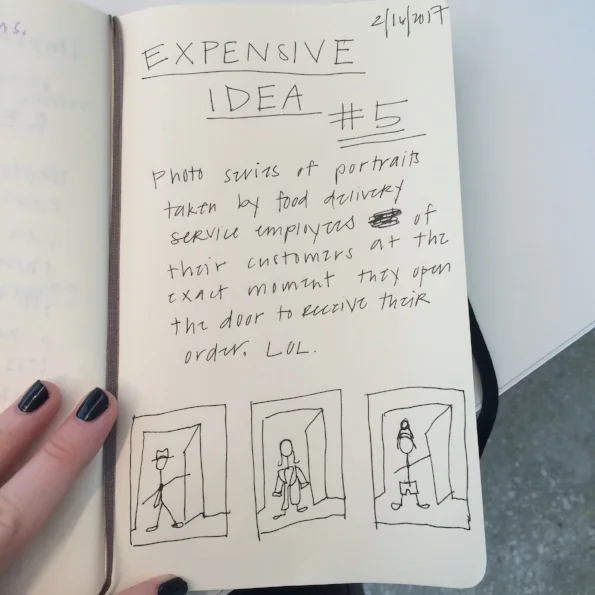 2/14/2017
EXPENSIVE
IDEA
#5
Photo series of portraits
taken by food delivery
service employees of
their customers at the
exact moment they open
the door to receive their
order. LOL.